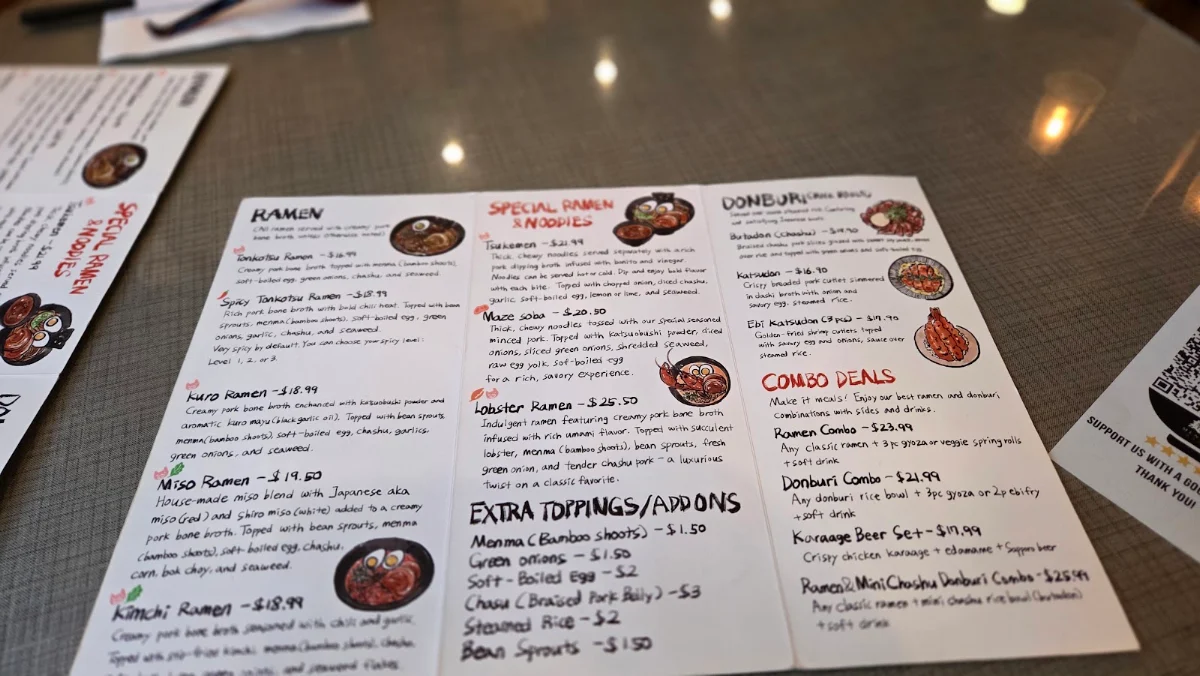 RAMEN
Tonkotsu Ramen
Creamy pork bone broth topped with menma (bamboo shoots),
soft-boiled egg, green onions, chashu, and seaweed.
Spicy Tonkotsu Ramen - $18.99
Rich pork bone broth with bold chili heat. Topped with bean
sprouts, menma (bamboo shoots), soft-boiled egg, green
onions, garlic, chashu, and seaweed.
Very spicy by default. You can choose your spicy level:
Level 1, 2, or 3.
Kuro Ramen - $18.99
Creamy pork bone broth enchanced with katsuobushi powder and
aromatic kuro mayu (black garlic oil). Topped with bean sprouts,
menma (bamboo shoots), soft-boiled egg, chashu, garlics,
green onions, and seaweed.
Miso Ramen - $19.50
House-made miso blend with Japanese aka
miso (red) and shiro miso (white) added to a creamy
pork bone broth. Topped with bean sprouts, menma
(bamboo shoots), soft-boiled egg, chashu,
corn, bok choy, and seaweed.
Kimchi Ramen - $18.99
Creamy pork bone broth seasoned with chili and garlic.
Topped with kimchi, menma (bamboo shoots), chashu,
and seaweed flakes.
SPECIAL RAMEN
& NOODLES
Tsukemen - $21.99
Thick, chewy noodles served separately with a rich
pork dipping broth infused with bonito and vinegar
Noodles can be served hot or cold. Dip and enjoy bold flavor
with each bite. Topped with chopped onion, diced chashu,
garlic, soft-boiled egg, lemon or lime, and seaweed.
Maze soba - $20.50
Thick, chewy noodles tossed with our special seasoned
minced pork. Topped with katsuobushi powder, diced
onions, sliced green onions, shredded seaweed,
raw egg yolk, soft-boiled egg
for a rich, savory experience.
Lobster Ramen - $25.50
Indulgent ramen featuring creamy pork bone broth
infused with rich umami flavor. Topped with succulent
lobster, menma (bamboo shoots), bean sprouts, fresh
green onion, and tender chashu pork - a luxurious
twist on a classic favorite.
EXTRA TOPPINGS/ADD ONS
Menma (Bamboo shoots) - $1.50
Green onions - $1.50
Soft-Boiled Egg - $2
Chasu (Braised Pork Belly) - $3
Steamed Rice - $2
Bean Sprouts - $1.50
DONBURI
Butadon (chashu)
Katsudon - $16.90
Crispy breaded pork cutlet simmered
in dashi broth with onion and
savory egg, steamed rice.
Ebi Katsudon (3 pcs) - $17.90
Golden-fried shrimp cutlets topped
with savory egg and onions, sauce over
steamed rice.
COMBO DEALS
Make it meals! Enjoy our best ramen and donburi
combinations with sides and drinks.
Ramen Combo - $23.99
Any classic ramen + 3pc gyoza or veggie spring rolls
+ soft drink
Donburi Combo - $21.99
Any donburi rice bowl + 3pc gyoza or 2p ebifry
+ soft drink
Karaage Beer Set - $17.99
Crispy chicken karaage + edamame + Sapporo beer
Ramen & Mini Chashu Donburi Combo - $25.99
Any classic ramen + mini chashu rice bowl (butadon)
+ soft drink
SPECIAL RAMEN
& NOODLES
SUPPORT US WITH A
THANK YOU!